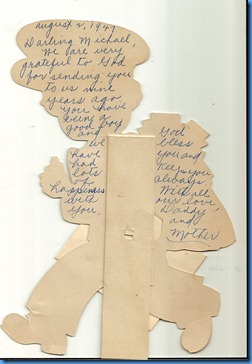 august 2, 1949
Darling Michael,
We are very
grateful to God
for sending you
to us nine
years ago
you have
being a
good boy
and
we
have
had
lots
of
happiness
with
you.
God
bless
you and
Keep you
always,
With all
our love,
Daddy
and
Mother